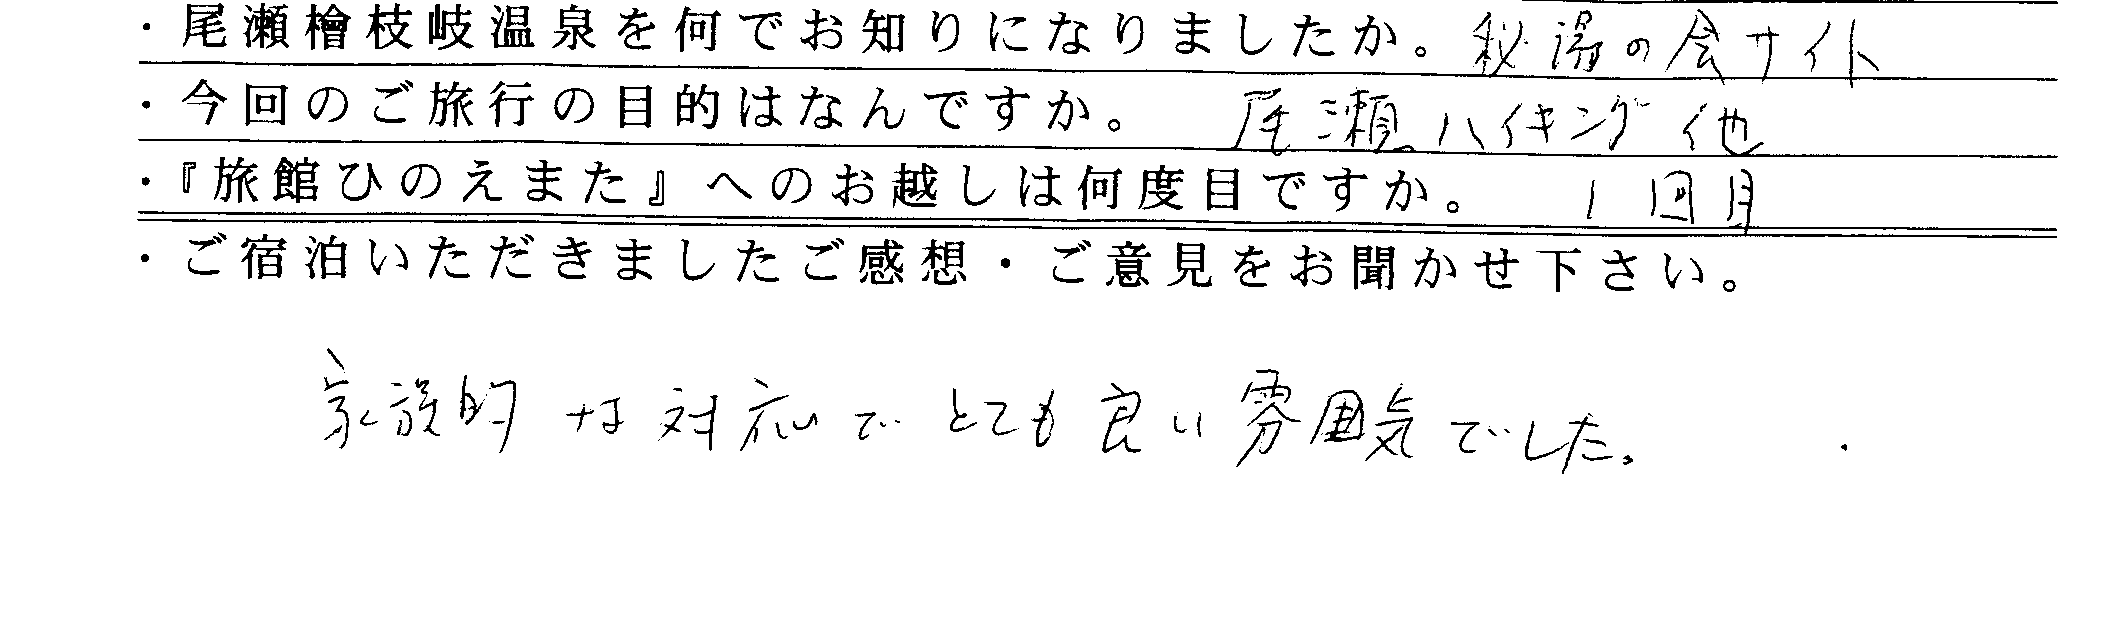 ・尾瀬檜枝岐温泉を何でお知りになりましたか。秘湯の会サイト
・今回のご旅行の目的はなんですか。 尾瀬ハイキング他
・『旅館ひのえまた』へのお越しは何度目ですか。 1回目
・ご宿泊いただきましたご感想・ご意見をお聞かせ下さい。
家族的な対応でとても良い雰囲気でした。